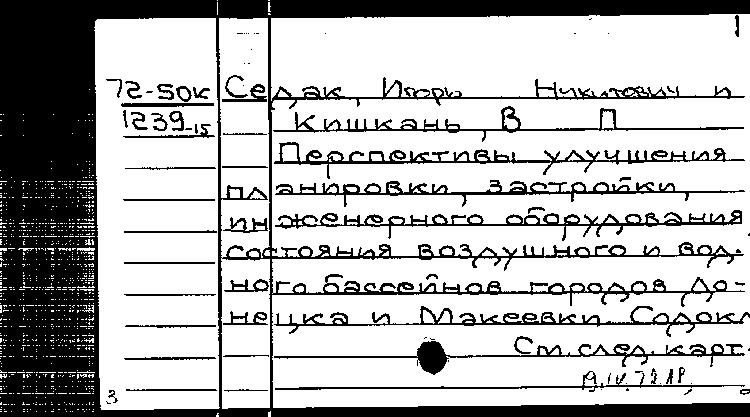 72-50к Седак, Игорь Никитович и
1239-15 Кишкань, В П
Перспективы улучшения
планировки, застройки,
инженерного оборудования,
состояния воздушного и вод-
ного бассейнов городов До-
нецка и Макеевки. Содокл
См. след. карт.
3